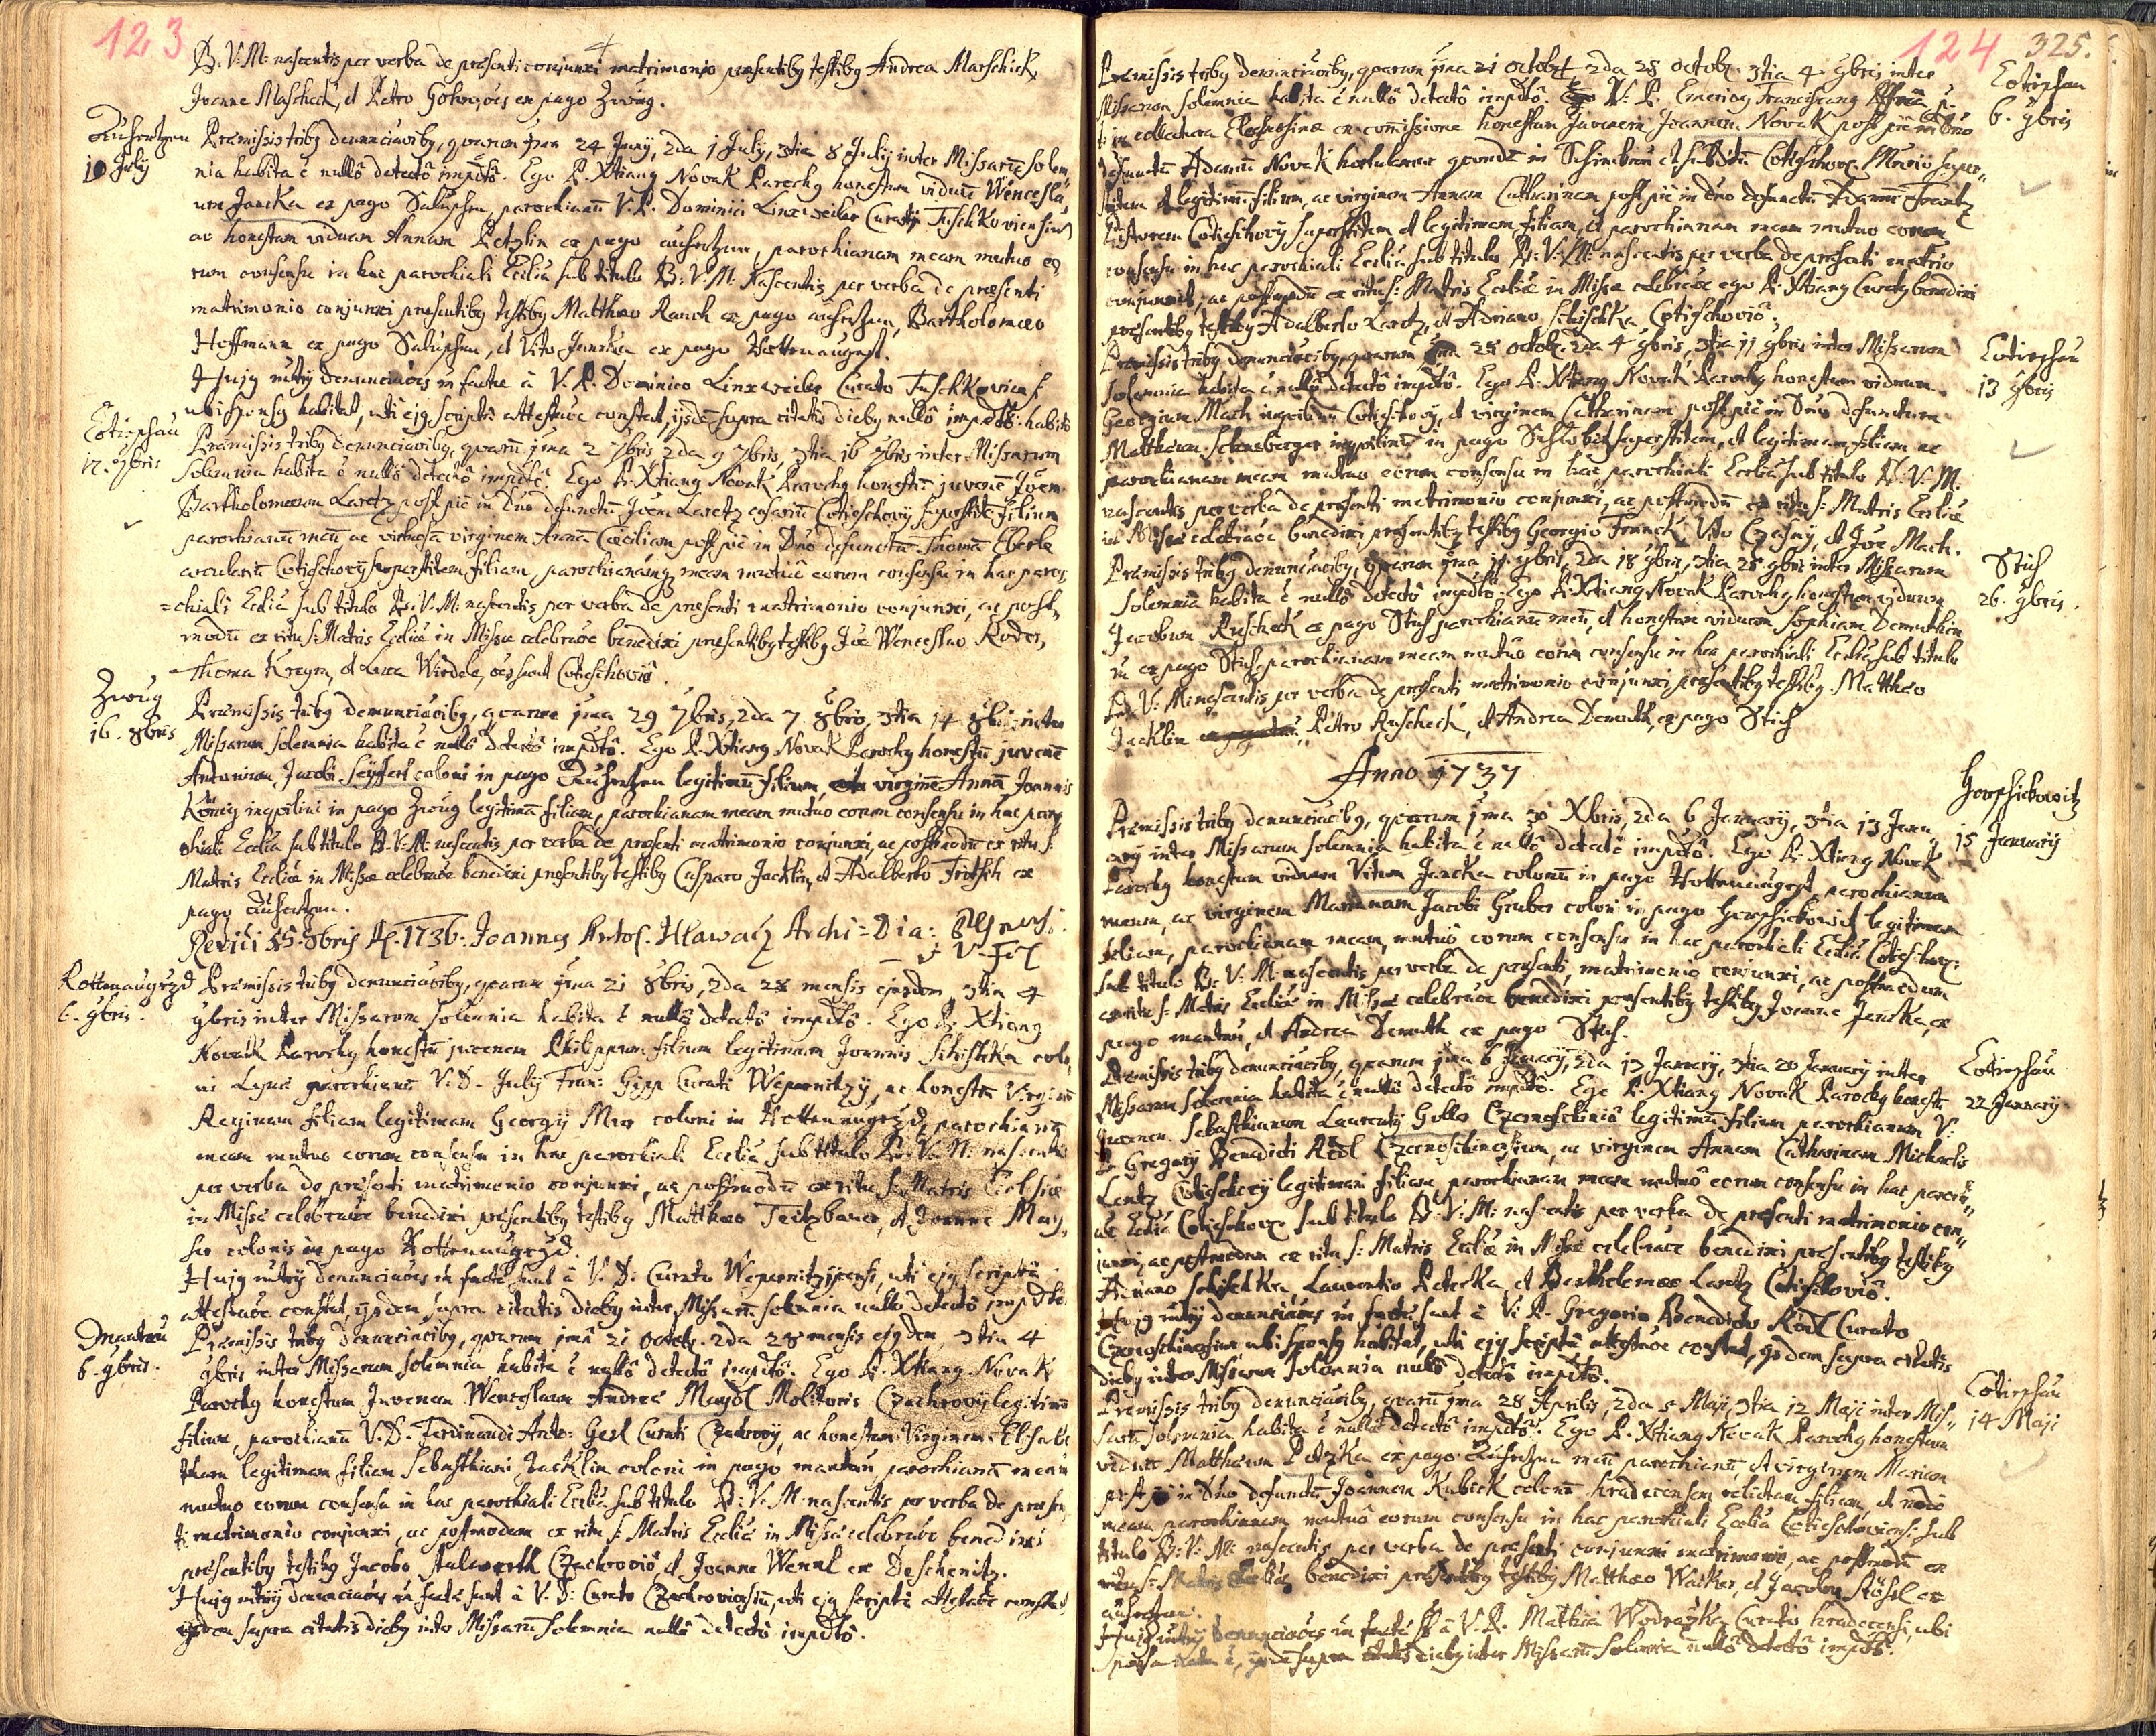 123
B. V. M. nascentis per verba de præsenti conjunxi matrimonio præsentibq testibq Andrea Marschick,
Joanne Mascheck, et Petro ex pago Zwug.
Auhertzen
10 July
Præmissis tribq denunciaōibq, quarum jma 24 Juny, 2da 1 July, 3tia 8 July inter Missarū solem,
nia habita ē nullô detectô impdtô. Ego P. Xtianq Novak Parochq honestum viduū Wencesla,
um Jancka ex pago parochianū V. P. Dominici Linxweiler Curati
ac honestam viduam Annam Petzlin ex pago auhertzen, parochianam meam mutuo eo,
rum consensu in hac parochiali Ecclia sub titulo B: V: M: Nascentis per verba de præsenti
matrimonio conjunxi præsentibq testibq Matthæo Rauch ex pago auhertzen, Bartholomæo
Hoffmann ex pago et Vito Jancka ex pago Hottenaugezt.
Hujq mtrÿ denunciaōes in factæ à V. P. Dominico Linxweiler Curato
ubi sponsq habitat, uti ejq scriptô attestaōe constat, ijsdē supra citatis diebq nullô impdtô habito
Cotieschau
17. 7bris
Præmissis tribq denunciaōibq, quarū jma 2 7bris 2da 9 7bris, 3tia 16 7bris inter Missarum
solemnia habita ē nullô detectô impdtô. Ego P. Xtianq Novak Parochq honestū juvenē
Bartholomæum Laretz post piè in Dn̄o defunctū Laretz Cotieschovÿ superstitē filium
parochianū meū ac virtuosā virginem Annā Cæciliam post piè in Dn̄o defunctū Thomā Eberle
arcularū Cotieschovÿ superstitem filiam, parochianamq meam mutuô eorum consensu in hac paro,
=chiali Ecclia sub titulo B. V. M. nascentis per verba de præsenti matrimonio conjunxi, ac post,
modū ex ritu S. Matris Eccliæ in Missæ celebraōe benedixi præsentibq testibq Wenceslao
Thoma et Luca Cotieschoviô.
Zwug
16. 8bris
Præmissis tribq denunciaōibq, quarum jma 29 7bris, 2da 7. 8bris, 3tia 14 8bris inter
Missarum solemnia habita ē nullô detectô impdtô. Ego P. Xtianq Novak Parochq honestū juvenē
Antonium, Jacobi Seyffert coloni in pago Auhertzen legitimū filium, virginē Annā Joannis
König inquilini in pago Zwug legitimā filiam, parochianam meam mutuo eorum consensu in hac paro,
chiali Ecclia sub titulo B. V. M. nascentis per verba de præsenti matrimonio conjunxi, ac postmodū ex ritu S:
Matris Eccliæ in Missæ celebraōe benedixi præsentibq testibq Casparo Jacklin, et Adalberto Fritsch ex
pago auhertzen.
1736. Joannes Hlawacz Archi=Dia:
Hottenaugezd
6. 9bris.
Præmissis tribq denunciaōibq, quarum jma 21 8bris, 2da 28 mensis ejusdem 3tia 4
9bris inter Missarum solemnia habita ē nullô detectô impdtô. Ego P. Xtianq
Novak Parochq honestū juvenem Philippum filium legitimum Joannis Schischka colo,
ni parochianū V. D. July Fran: Gipp Curati ac honestā Virginē
Reginam filiam legitimam Georgÿ coloni in Hottenaugezd, parochianā
meam mutuo eorum consensu in hac parochiali Ecclia sub titulo B. V. M. nascentis
per verba de præsenti matrimonio conjunxi, ac postmodū ex ritu S. Matris Eccliæ
in Missæ celebraōe benedixi præsentibq testibq Matthæo et Joanne May,
er colonis in pago Hottenaugezd.
Hujq mtrÿ denunciaōes in factæ sunt à V. D. Curato uti ejq scriptâ
attestaōe constat ijsdem supra citatis diebq inter Missarū solemnia nullo detectô impdtô
Mantau
6. 9bris.
Præmissis tribq denunciaōibq, quarum jma 21 octob. 2da 28 mensis ejqdem 3tia 4
9bris inter Missarum solemnia habita ē nullô detectô impdtô. Ego P. Xtianq Novak
Parochq honestum Juvenem Wenceslaum Andreæ Maydl Molitoris Czachrovÿ legitimū
filium, parochianū V. D. Ferdinandi Anto: Curati Czachrovÿ, ac honestam Virginem Elisabe
tham legitimam filiam Sebastiani Jacklin coloni in pago mantau parochianā meam
mutuo eorum consensu in hac parochiali Ecclia sub titulo B: V. M. nascentis per verba de præsen
ti matrimonio conjunxi, ac postmodum ex ritu S: Matris Eccliæ in Missæ celebraōe benedixi
præsentibq testibq Jacobo Czachroviô, et Joanne Wennl ex Deschenitz.
Hujq mtrÿ denunciaōes in factæ sunt à V. D. Curato Czachroviensi, uti ejq scriptâ attestaōe constat,
ijsdem supra citatis diebq inter Missarū solemnia nullô detectô impdtô.
124 325.
Cotieschau
6. 9bris
Præmissis tribq denunciaōibq, quarum jma 21 octob 2da 28 octob. 3tia 4 9bris inter
Missarum solemnia habita ē nullô detectô impdtô. V. P. Emericq Franciscanq
ex commissione honestum Juvenem Joannem Novak post piè in Dn̄o
defunctū Adamū Novak quondā in et Cotieschov. super,
stitem et legitimū filium, ac virginem Annam Catharinam post piè in Dn̄o defunctū Adamū Frantz
Pistorem Cotieschovÿ superstitem et legitimam filiam, et parochianam meam mutuo eorum
consensu in hac parochiali Ecclia sub titulo B: V: M: nascentis per verba de præsenti matrio
conjunxit, ac postmodū ex ritu S: Matris Eccliæ in Missæ celebraōe ego P. Xtianq Curatq benedixi
præsentibq testibq Adalberto Laretz, et Adriano Schischka Cotieschoviô.
Cotieschau
13 9bris
Præmissis tribq denunciaōibq, quarum jma 28 octob. 2da 4 9bris, 3tia 11 9bris inter Missarum
solemnia habita ē nullô detectô impdtô. Ego P. Xtianq Novak Parochq honestum viduum
Georgium Mach inquilinū Cotieschovÿ, et virginem Catharinam post piè in Dn̄o defunctum
Matthæum Schensberger inquilinū in pago superstitem, et legitimam filiam ac
parochianam meam mutuo eorum consensu in hac parochiali Ecclia sub titulo B. V. M.
nascentis per verba de præsenti matrimonio conjunxi, ac postmodū ex ritu S: Matris Eccliæ
in Missæ celebraōe benedixi, præsentibq testibq Georgio Franck, Vito Czasny, et Mach.
Stich
26. 9bris.
Præmissis tribq denunciaōibq, quarum jma 11. 9bris, 2da 18 9bris, 3tia 25 9bris inter Missarum
solemnia habita ē nullô detectô impdtô. Ego P. Xtianq Novak Parochq honestum viduum
Jacobum Ruscheck ex pago Stich parochianū meū, et honestam viduam Sophiam Demuthin
ex pago Stich, parochianam meam mutuo eorum consensu in hac parochiali Ecclia sub titulo
B. V. M. nascentis per verba de præsenti matrimonio conjunxi præsentibq testibq Matthæo
Jacklin Petro Ruscheck, et Andrea Demuth, ex pago Stich
Anno 1737
Horschickowitz
15 January
Præmissis tribq denunciaōibq, quarum jma 30 Xbris, 2da 6 January, 3tia 13 Janu,
ary inter Missarum solemnia habita ē nullô detectô impdtô. Ego P. Xtianq Novak
Parochq honestum viduum Vitum Jancka colonū in pago Hottenaugezt parochianum
meum, ac virginem Mariannam Jacobi Gruber coloni in pago Horschickowitz legitimam
filiam, parochianam meam, mutuô eorum consensu in hac parochiali Ecclia Cotieschov:
sub titulo B: V: M. nascentis per verba de præsenti, matrimonio conjunxi, ac postmodum
ex ritu S: Matris Eccliæ in Missæ celebraōe benedixi præsentibq testibq Joanne Jancka, ex
pago mantau, et Andrea Demuth ex pago Stich.
Cotieschau
22 January
Præmissis tribq denunciaōibq, quarum jma 6 January, 2da 13 January, 3tia 20 January inter
Missarum solemnia habita ē nullô detectô impdtô. Ego P. Xtianq Novak Parochq honestū
Juvenem Sebasthianum Laurentÿ Czernoschiniô legitimū filium parochianum V:
P. Gregorÿ Benedicti Rödl Czernoschinensium, ac virginem Annam Catharinam Michaelis
Lentz Cotieschovÿ legitimam filiam parochianam meam mutuô eorum consensu in hac parochi,
ali Ecclia Cotieschov: sub titulo B. V. M. nascentis per verba de præsenti matrimonio con,
junxi, ac postmodum ex ritu S: Matris Eccliæ in Missæ celebraōe benedixi præsentibq testibq
Adriano Schischka, Laurentio Petrcka, et Bartholomæo Laretz Cotieschoviô.
Hujq mtrÿ denunciaōes in factæ sunt à V: P. Gregorio Benedicto Rödl Curato
Czernoschinensium ubi sponsq habitat, uti ejq scriptâ attestaōe constat, ijsdem supra citatis
diebq inter Missarum solemnia nullô detectô impdtô.
Cotieschau
14 Maji
Præmissis tribq denunciaōibq, quarū jma 28 Aprilis, 2da 5 Maji, 3tia 12 Maji inter Mis,
sarū solemnia habita ē nullô detectô impdtô. Ego P. Xtianq Novak Parochq honestum
viduū Matthæum Petzka ex pago Auhertzen meū parochianū, et virginem Mariam
post piè in Dn̄o defunctū Joannem Kubeck colonū hradecensem relictam filiam, et
meam parochianam mutuô eorum consensu in hac parochiali Ecclia Cotieschoviensi sub
titulo B: V: M: nascentis per verba de præsenti conjunxi matrimonio, ac postmodū ex
ritu S: Matris Eccliæ benedixi præsentibq testibq Matthæo Walcker, et Jacobo Stössl ex
auhertzen.
Hujq mtrÿ denunciaōes in factæ st à V. P. Mathia Wodrazka Curato hradecensi, ubi
sponsa ijsdē supra citatis diebq inter Missarū solemnia nullô detectô impdtô.